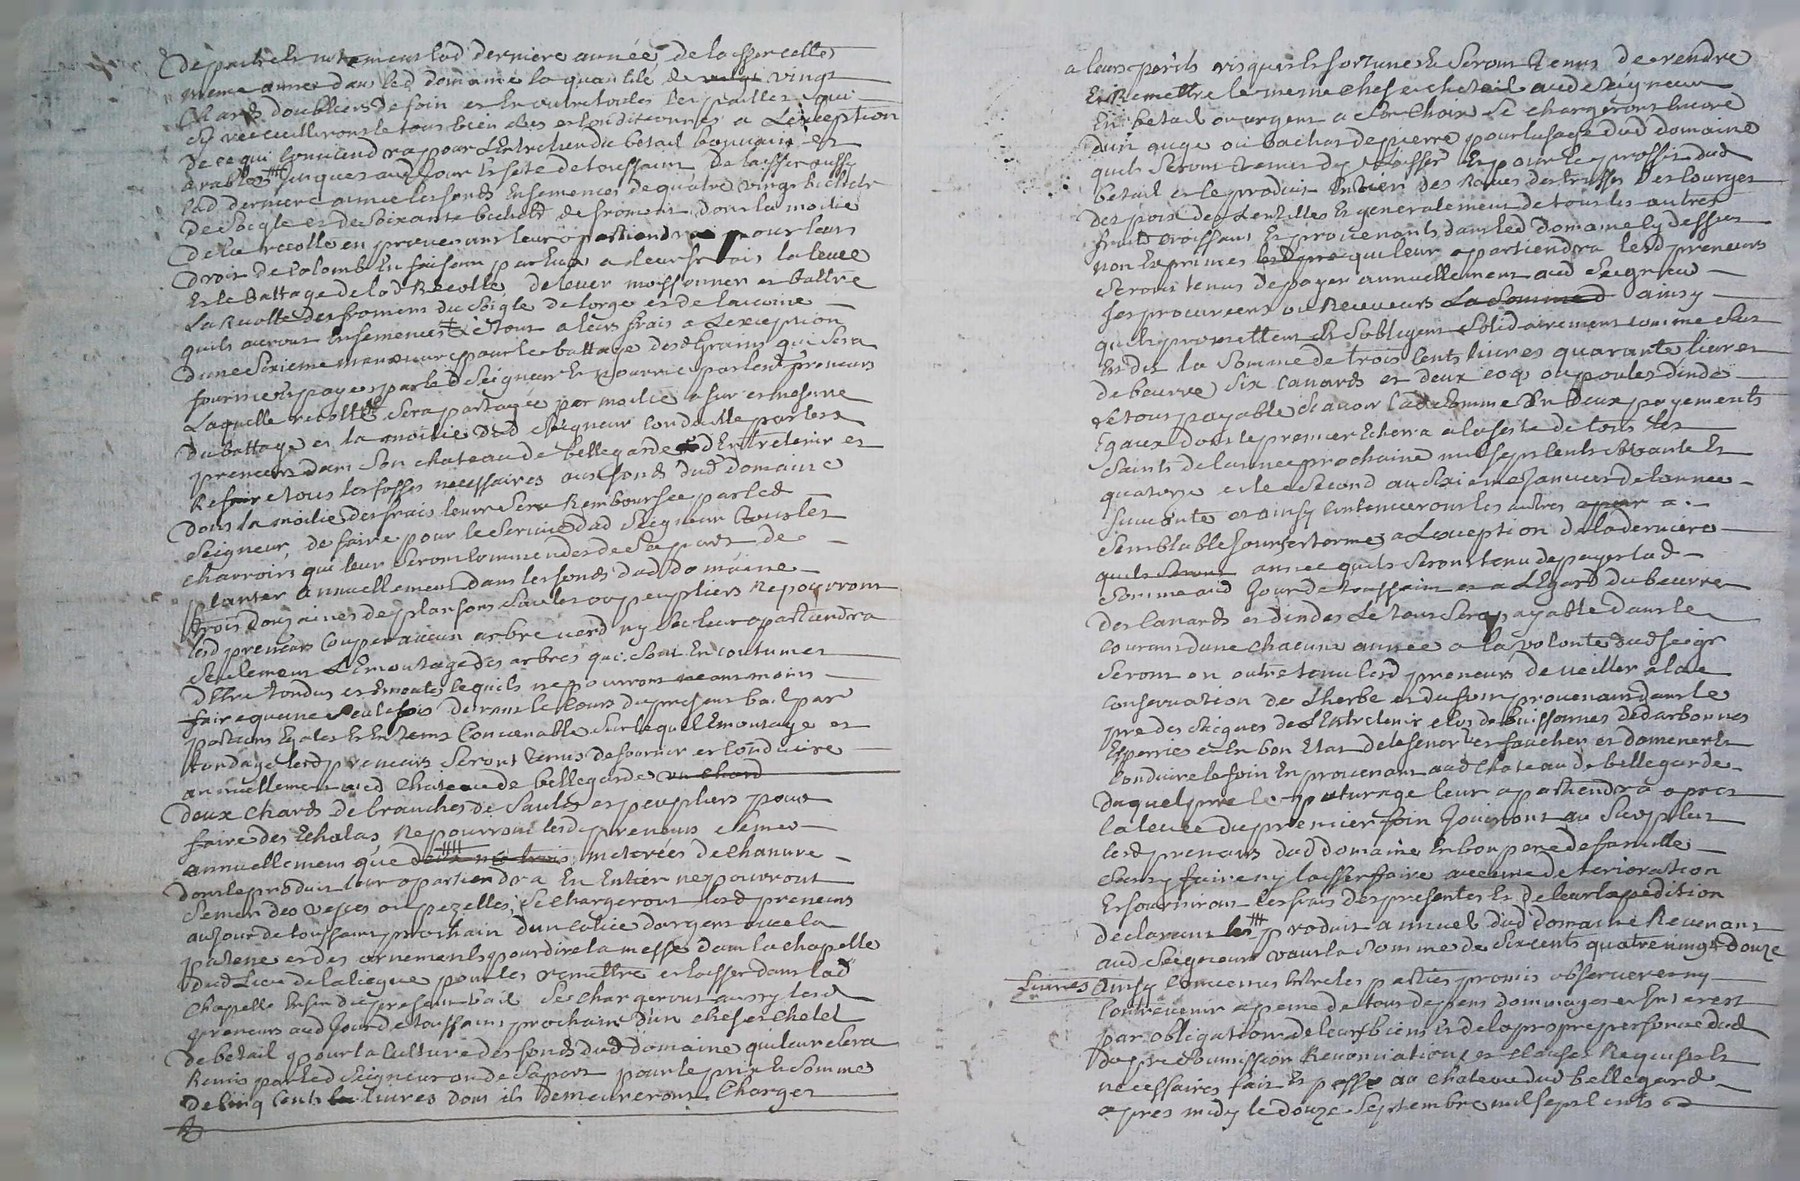 De partie et notement lad derniere année, de laisser cette
meme année dans led domaine la quantité de vingt
Chards doubliers de foin et en outre toutes les pailles qui
se recueilliront le tout bien et conditionnés a L'exception
de ce qui conviendra pour L'Entretien du betail bouvain et
arable jusques aud jour et fete de toussaint De laisser aussy
lad derniere année les fonds Ensemencés de quatre vingt bichets
de seigle et de soixante bichets de froment, dont la moitié
de la recolte en provenant leur apartiendra pour leurs
Droit de Colomb En faisant par Eux a leurs frais la levée
Et le Battage de lad Recolte, de lever moissonner et battre
La Recolte des froments du seigle de lorge et de lavoine
quils auront Ensemencés Le tout a leurs frais a L'exception
D'une sixieme manœuvre pour le battage desd Grains qui sera
fournie et payée par led Seigneur Et nourrie par lesd preneurs
Laquelle recolte sera partagée par moitié a fur et mesure
Du battage et la moitié dud Seigneur conduitte par les
preneurs dans son chateau de bellegarde D'Entretenir et
Refaire tous les fossés necessaires aux fonds dud domaine
Dont la moitié des frais leur sera Remboursée par led
Seigneur, de faire pour le service dud Seigneur tous les
charrois qui leur seront commandés de sa part de
planter annuellement dans les fonds dud domaine
trois douzaines de plansons saules ou peupliers Ne pouvront
lesd preneurs couper aucun arbre verd ny sec leur apartiendra
seulement L'Emoutage des arbres qui sont En coutume
D'Etre tondus et Emoutés lequels ne pourront neantmoins
faire qu'une seule fois durant le cours du present bail par
portions Egales Et En tems Convenable sur lequel Emoutage et
tondage lesd preneurs seront tenus de fournir et conduire
annuellement aud Chateau de bellegarde un chard
deux Chards de branches de Saules et peupliers pour
faire des Echalas, Ne pourront lesd preneurs semer
annuellement que deux metérées de Chanvre
dont le produit leur apartiendra En Entier ne pouvront
semer des vesces ou pezelles, se chargeront lesd preneurs
au jour de toussaint prochain d'un calice d'argent avec la
patene et des ornements pour dire la messe dans la chapelle
dud Lieu pour les remettre et laisser dans lad
Chapelle En fin du present bail se chargeront aussy lesd
preneurs aud Jour de toussaint prochain d'un chef et chetel
de betail pour la culture des fonds dud domaine qui leur sera
Remis par led Seigneur ou de sa part pour le prix et somme
de cinq cents livres dont ils demeureront Chargés
a leurs perils risques et fortunes Et seront tenus de rendre
Et Remettre le meme chef et chetail aud seigneur
En betail ou argent a son choix se chargeront encore
d'un auge ou bachat de pierre pour l'usage dud domaine
quils seront tenus dy Laisser Et pour le proffit dud
betail et le produit Entier des Raves des truffes des courges
des pois des Lentilles Et generalement de tous les autres
fruits croissant Et provenants dans led domaine cy dessus
non Exprimés qui leur apartiendra lesd preneurs
seront tenus de payer annuellement aud Seigneur
ses procureurs ou Receveurs La Somme d ainsy
qu'ils promettent Et S'obligent solidairement comme dit
Est de la Somme de trois cents livres quarante livres
de beurre six canards et deux coq ou poules dinde
Le tout payable scavoir lad somme En deux payements
Egaux dont le premier Echera a la fete de tous les
Saints de lannée prochaine mil sept cents soixante et
quatorze et le second au sixieme Janvier de lannée
suivante et ainsy continueront les autres a
semblable jours et termes a L'exception de la derniere
quils seront année quils seront tenu de payer lad
somme aud Jour de toussaint et a L'Egard du beurre
des Canards et dindes Le tout sera payable dans le
courant d'une chacune année a la volonté dud seigr
seront en outre tenu lesd preneurs de veiller a la
conservation de L'herbe et du foin provenant dans le
pré de L'Entretenir clos de buissonnes
Espierré et En bon Etat de le fener et faucher et d'amener Et
Conduire le foin En provenant aud Chateau de bellegarde
duquel pré le paturage leur apartiendra apres
la levée du premier foin Jouiront au surplus
lesd preneurs dud domaine En bon pere de famille
sans y faire ny laisser faire aucune deterioration
Et fourniront les frais des presentes Et de leur Expedition
declarant le produit annuel dud domaine Revenant
aud Seigneur vaut la Somme de Six cents quatre vingt Douze
livres Ainsy Convenu Entre les parties promis observer et ny
Contrevenir a peine de tout depens dommages et Interest
par obligation de leurs biens Et de la propre personne dud
soumission Renonciations et clauses Requises Et
necessaires fait Et passé au chateau dud bellegarde
apres midy le douze Septembre mil sept cents